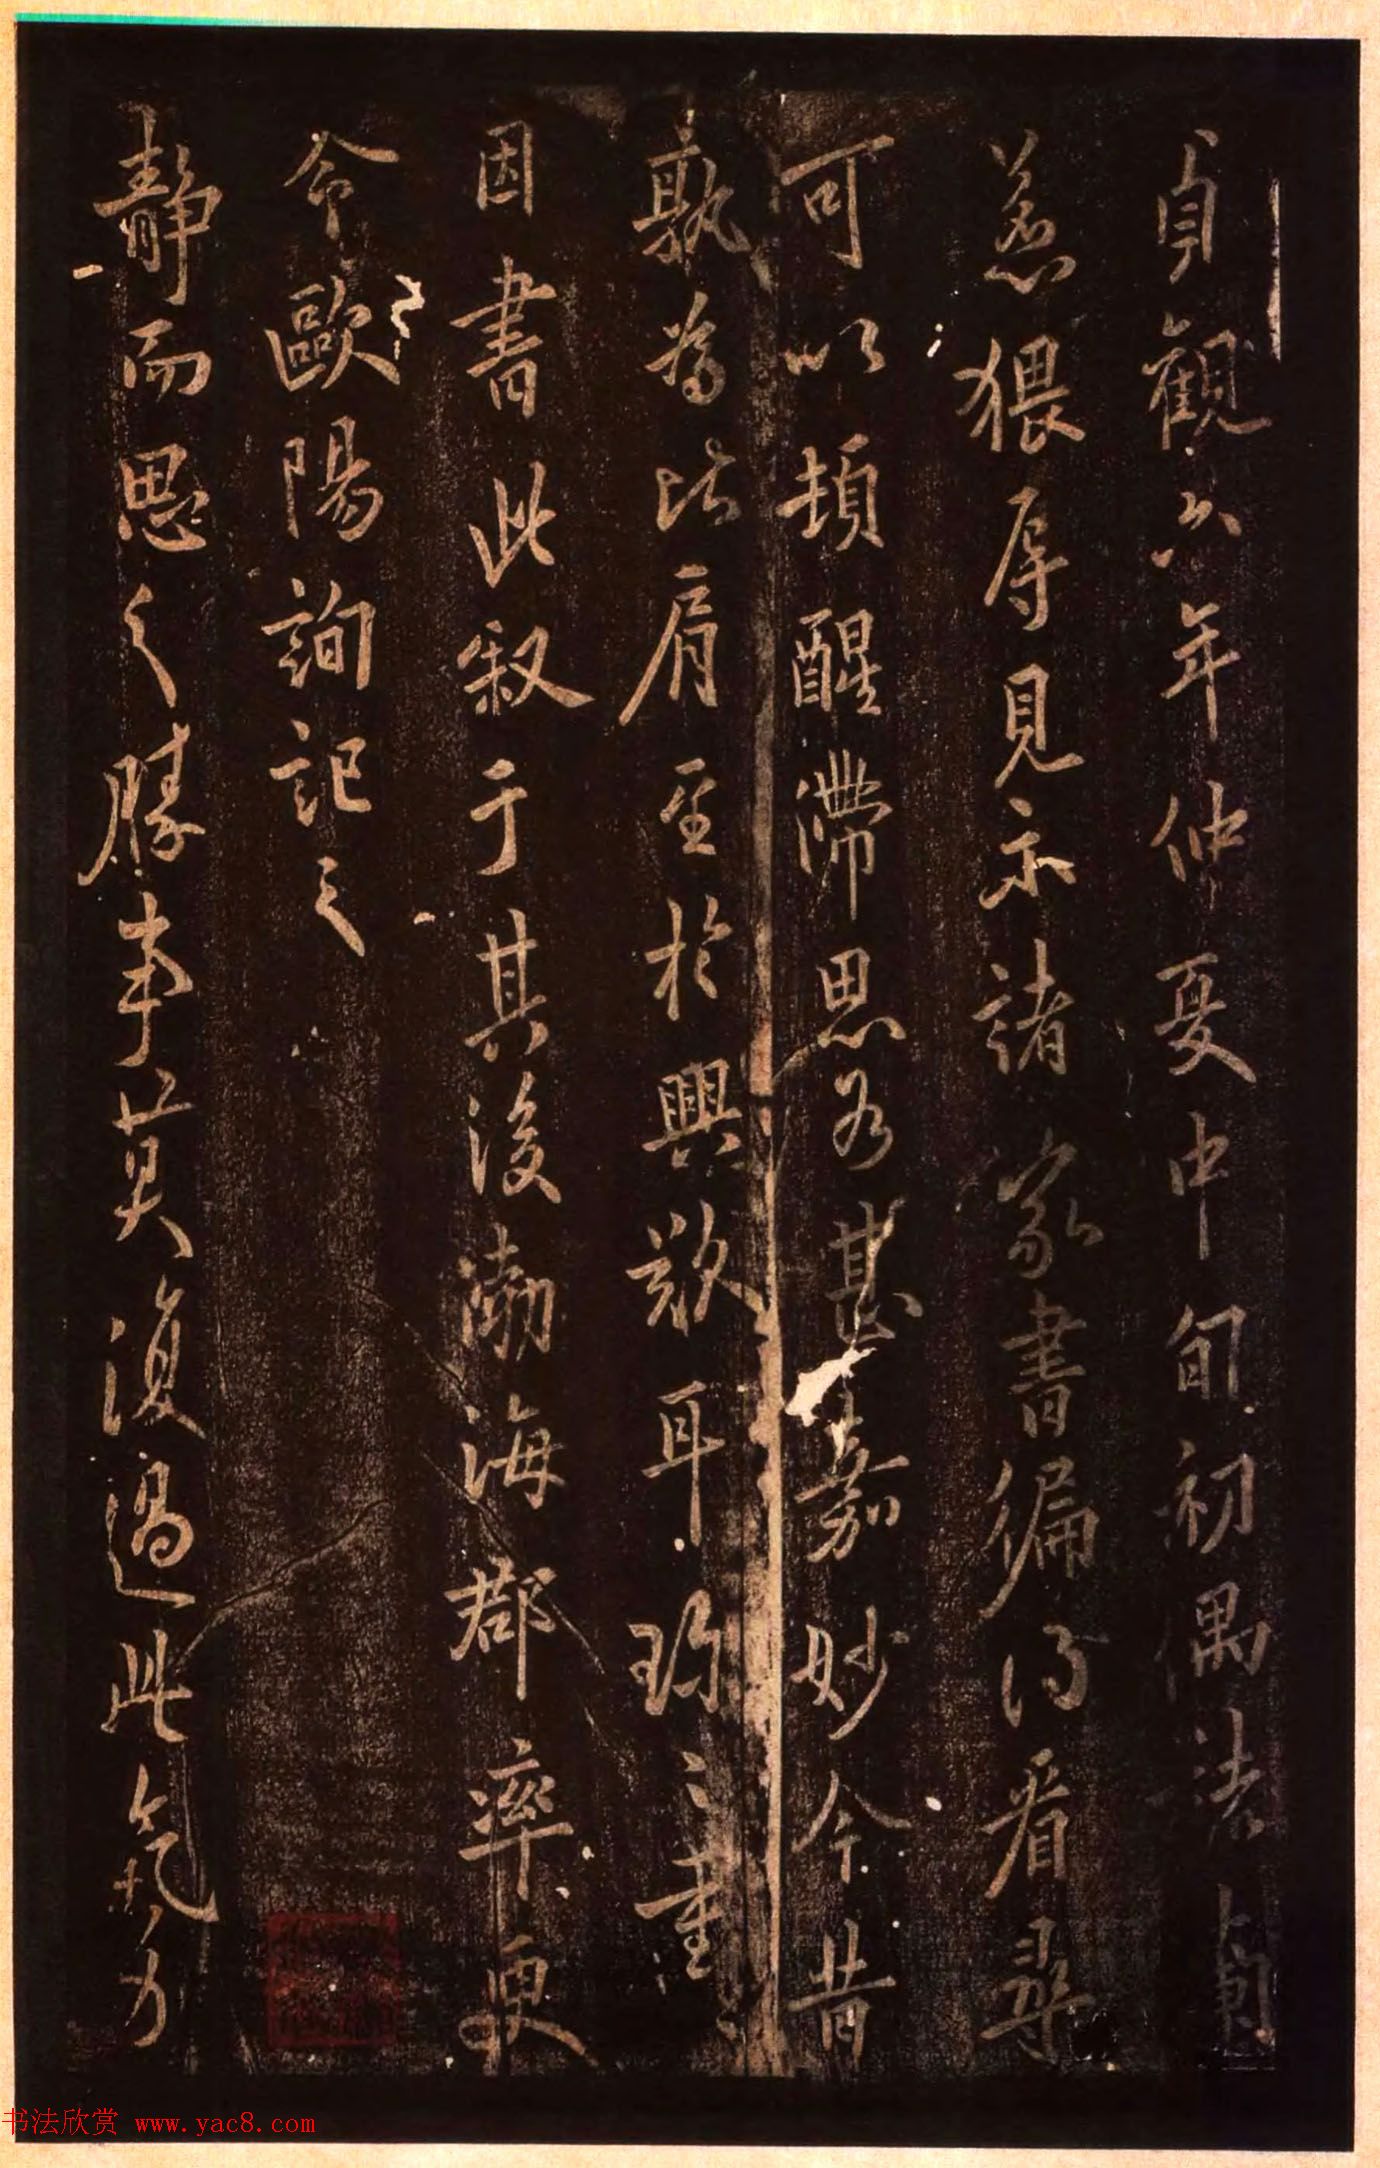 貞觀六年仲夏中旬初偶
羔猥辱見示諸家書徧得看尋
可以頓醒滯思為甚嘉妙今昔
孰為比肩至於興歎耳珍之重
因書此叙于其後渤海郡率更
令歐陽詢記之
靜而思之勝事莫復過此氣力
书法欣赏 www.yac8.com